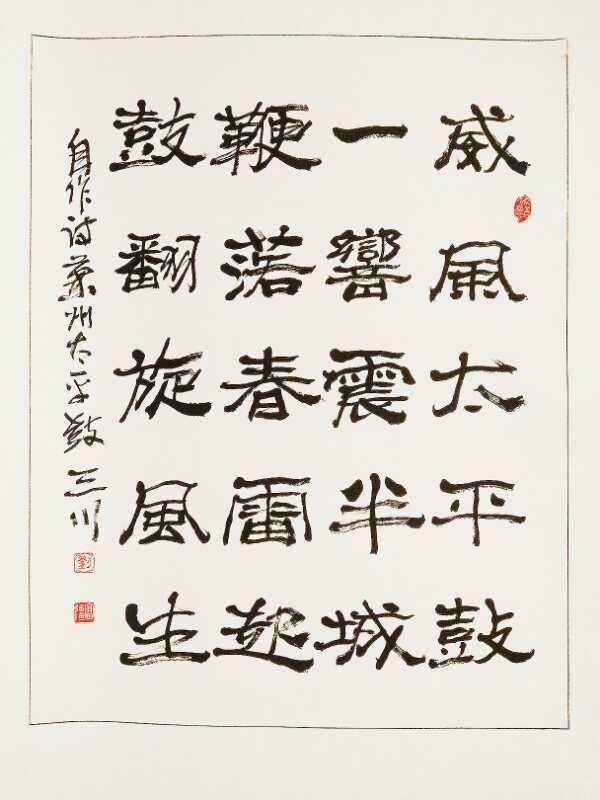 威風太平鼓
一響震半城
鞭落春雷起
鼓翻旋風生
自作詩蘭州太平鼓 三川